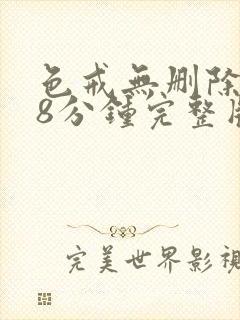 色戒無刪除
8分鍾完整
完美世界影視